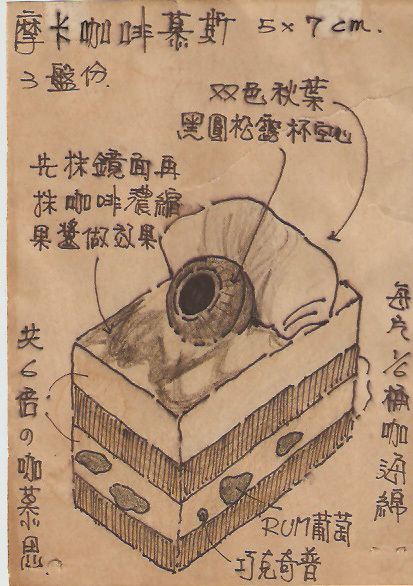 摩卡咖啡慕斯 5×7cm.
3盤份.
双色秋葉
黑圓松露杯空心
先抹鏡面再
抹咖啡濃縮
果醬做效果
共6倍の咖慕思
每片1/6桶咖海綿
RUM葡萄
巧克奇普